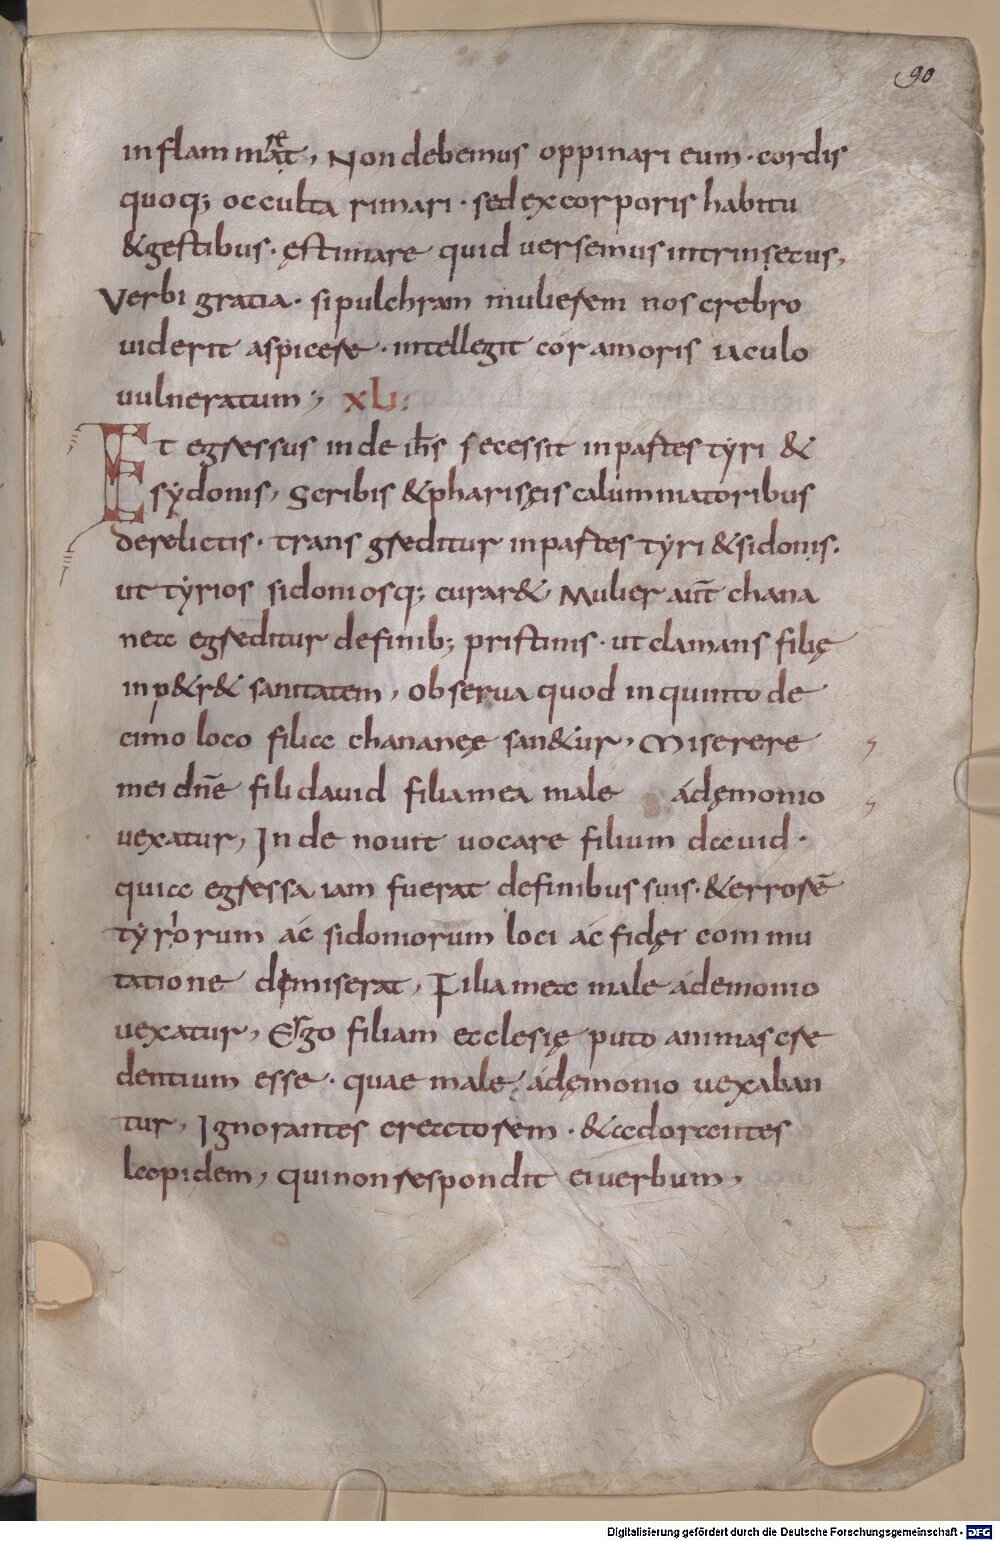 90
inflammaret, Non debemus oppinari eum· cordis
quoq; occulta rimari· sed ex corporis habitu
&gestibus· ęstimare quid uersemus intrinsecus,
Verbi gratia· si pulchram mulierem nos crebro
uiderit aspicere· intellegit cór amoris iaculo
uulneratum; XLI:
Et egressus inde ih̅s secessit in partes tyri &
sydonis, Scribis & pharisęis calumniatoribus
derelictis· transgreditur in partes tyri & sidonis·
ut tyrios sidoniosq; curar&, Mulier aut̅ chana
nea egreditur definib; pristinis· ut clamans filię
inp&r& sanitatem, Observa quod in quinto de
cimo loco filia chananęę san&ur, Miserere
mei dn̅e fili dauid filia mea male á dęmonio
uexatur, Inde nouit uocare filium dauid·
quia egressa iam fuerat definibus suis· & errorē
tyriorum ác sidoniorum loci ác fidęi commu
tatione demiserat, Filia mea male á demonio
uexatur, Ergo filiam ecclesię puto animas cre
dentium esse· quae male á dęmonio uexaban
tur, Ignorantes creatorem· & adorantes
lapidem, qui non respondit ei uerbum,
Digitalisierung gefördert durch die Deutsche Forschungsgemeinschaft - DFG